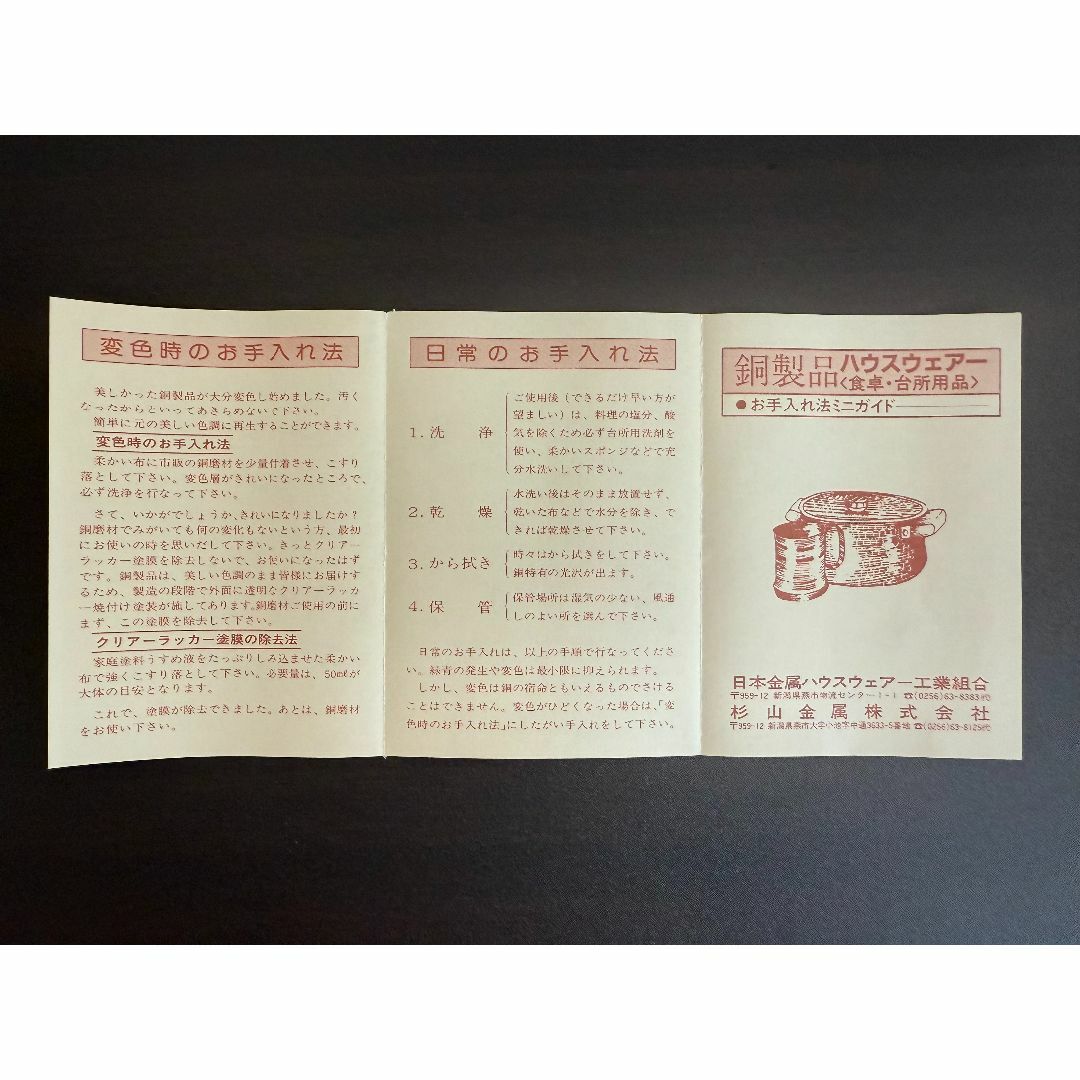 変色時のお手入れ法
美しかった銅製品が大分変色し始めました。汚く
なったからといってあきらめないで下さい。
簡単に元の美しい色調に再生することができます。
変色時のお手入れ法
柔かい布に市販の銅磨材を少量付着させ、こすり
落として下さい。変色層がきれいになったところで、
必ず洗浄を行なって下さい。
さて、いかがでしょうか、きれいになりましたか?
銅磨材でみがいても何の変化もないという方、最初
にお使いの時を思いだして下さい。きっとクリアー
ラッカー塗膜を除去しないで、お使いになったはず
です。銅製品は、美しい色調のまま皆様にお届けす
るため、製造の段階で外面に透明なクリアーラッカ
ー焼付け塗装が施してあります。銅磨材ご使用の前に
まず、この塗膜を除去して下さい。
クリアーラッカー塗膜の除去法
家庭塗料うすめ液をたっぷりしみ込ませた柔かい
布で強くこすり落として下さい。必要量は、50mℓが
大体の目安となります。
これで、塗膜が除去できました。あとは、銅磨材
をお使い下さい。
日常のお手入れ法
1. 洗　浄
ご使用後(できるだけ早い方が
望ましい)は、料理の塩分、酸
気を除くため必ず台所用洗剤を
使い、柔かいスポンジなどで充
分水洗いして下さい。
2. 乾　燥
水洗い後はそのまま放置せず、
乾いた布などで水分を除き、で
きれば乾燥させて下さい。
3. から拭き
時々はから拭きをして下さい。
銅特有の光沢が出ます。
4. 保　管
保管場所は湿気の少ない、風通
しのよい所を選んで下さい。
日常のお手入れは、以上の手順で行なってくださ
い。緑青の発生や変色は最小限に抑えられます。
しかし、変色は銅の宿命ともいえるものでさける
ことはできません。変色がひどくなった場合は、「変
色時のお手入れ法」にしたがい手入れをして下さい。
銅製品ハウスウェアー
〈食卓・台所用品〉
●お手入れ法ミニガイド
日本金属ハウスウェアー工業組合
〒959-12 新潟県燕市物流センター1-1 ☎(0256)63-8383㈹
杉山金属株式会社
〒959-12 新潟県燕市大字小池字中通3633-5番地 ☎(0256)63-8125㈹